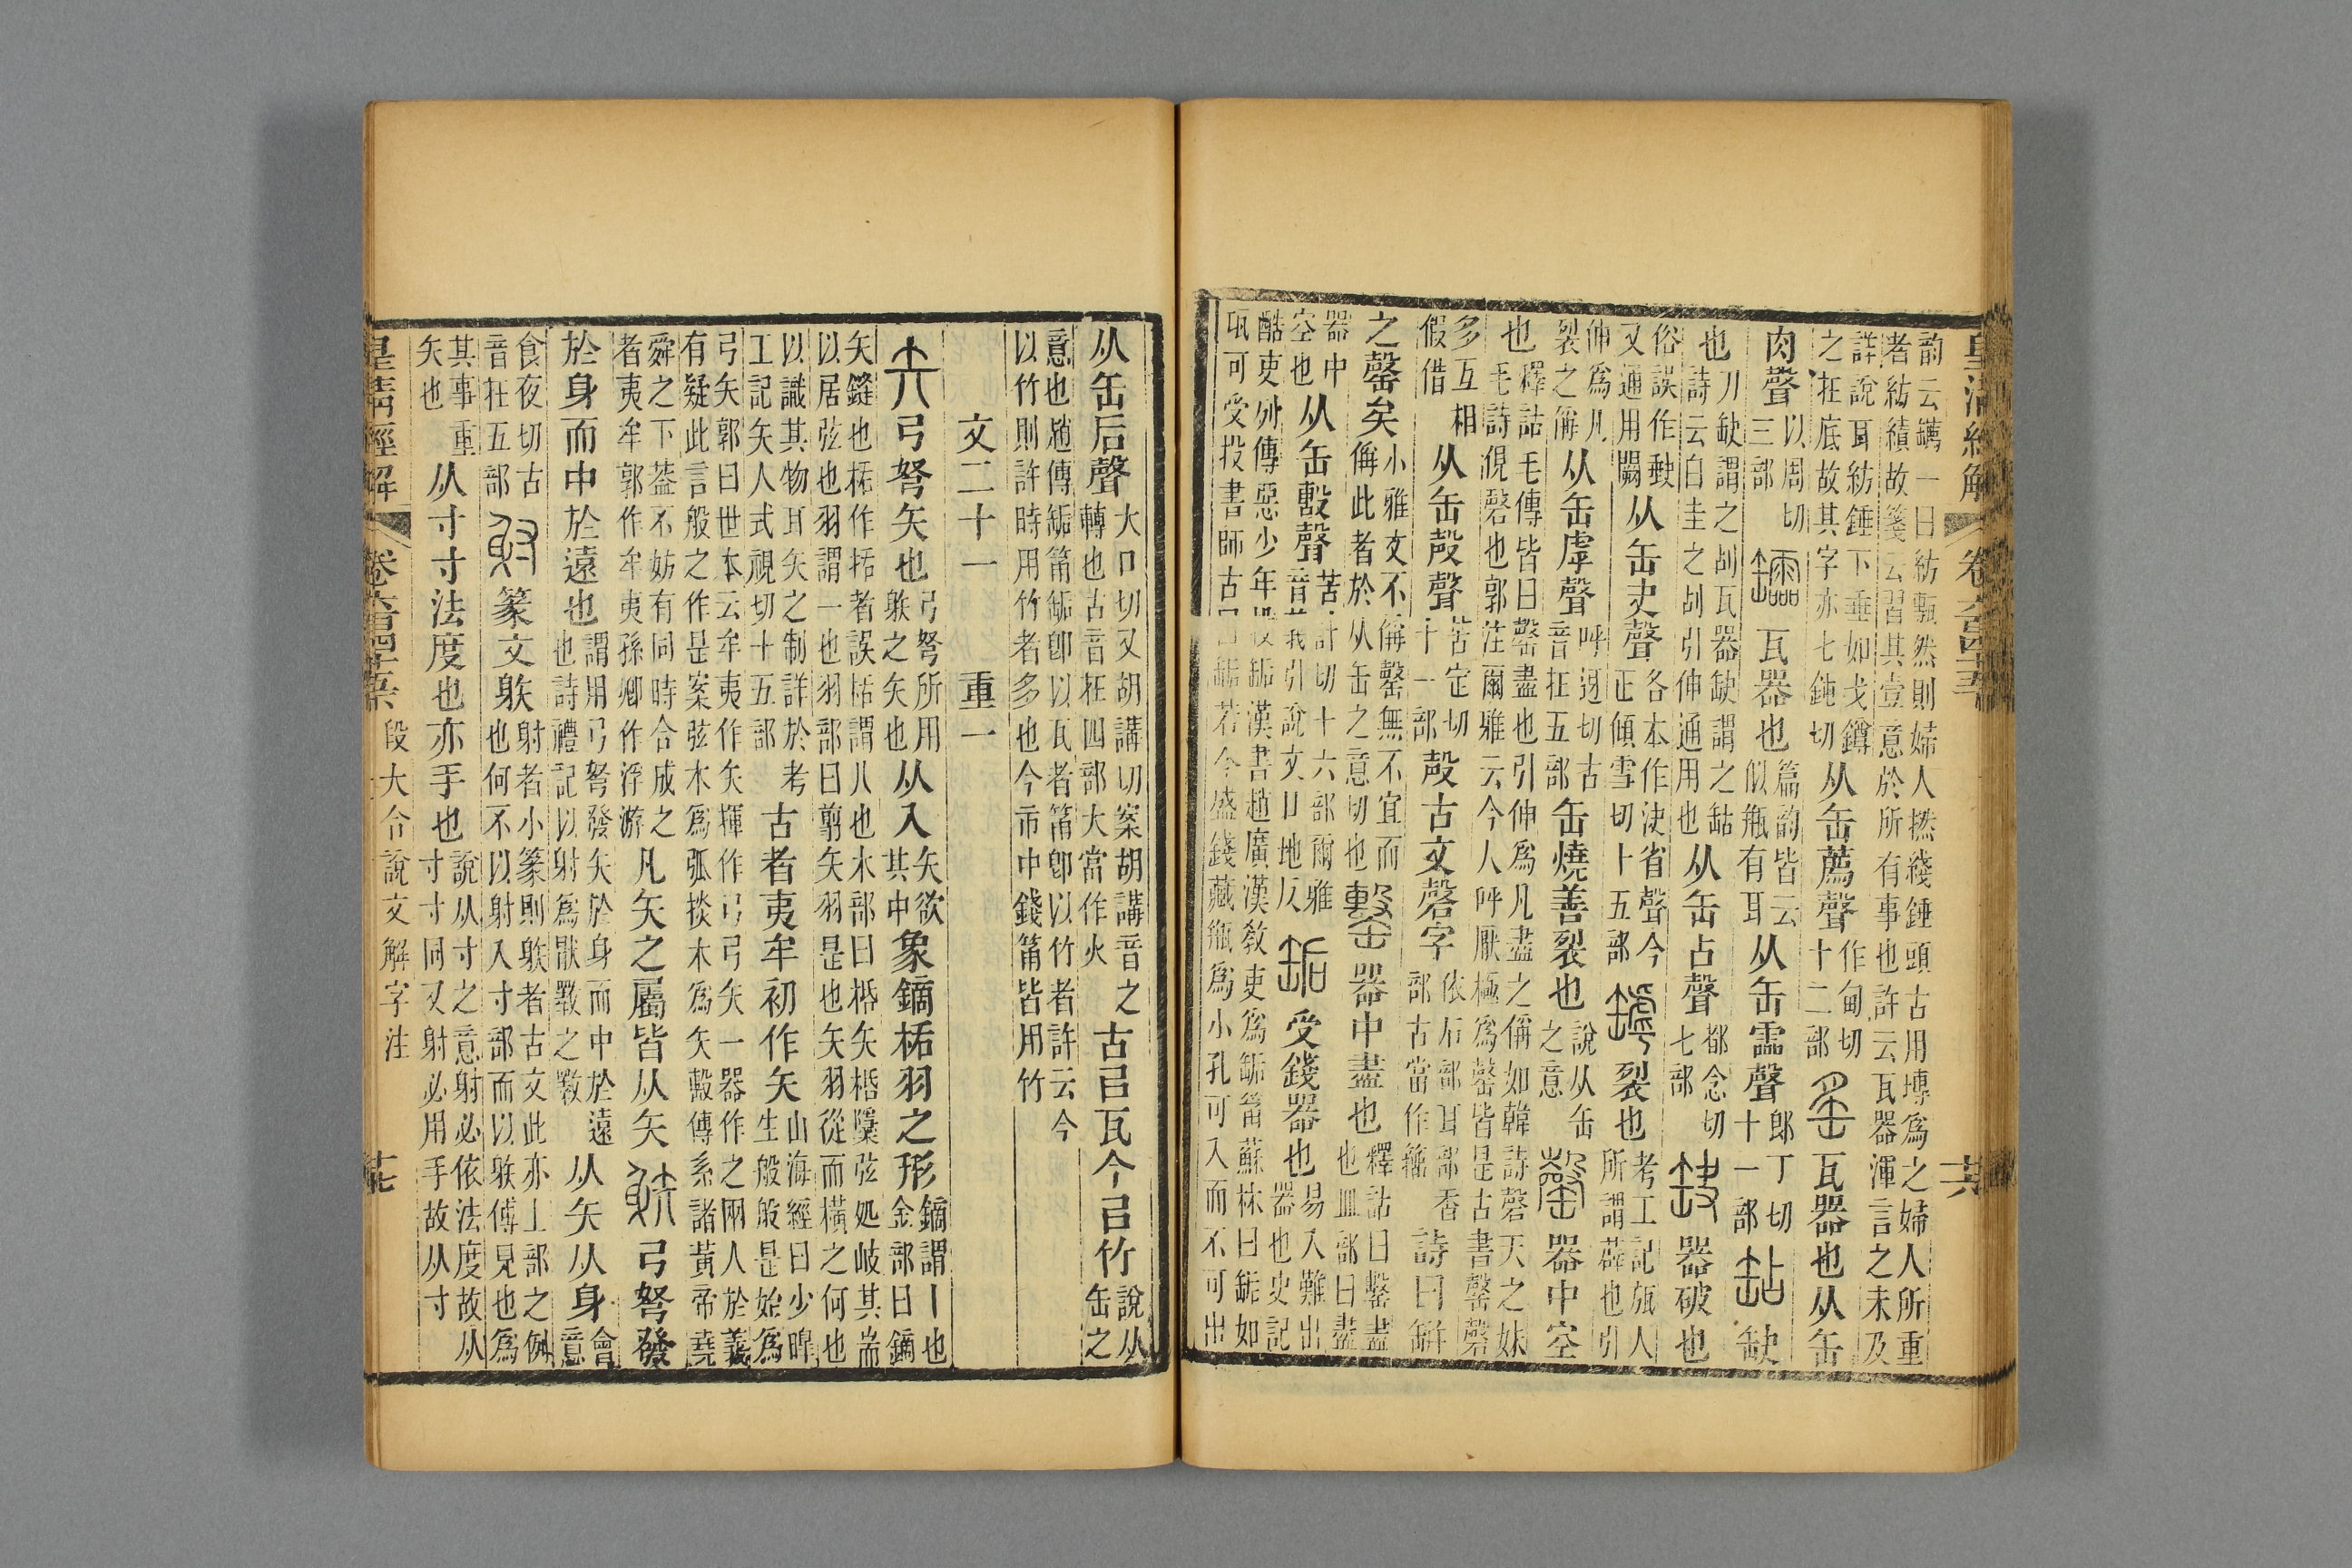 皇清經解 卷六百四十五 十六
韵云䥥一曰紡甎然則婦人撚綫錘頭古用塼爲之婦人所重
者紡績故箋云習其壹意於所有事也許云瓦器渾言之未及
詳說耳紡錘下垂如戈鐏之在底故其字亦七鈍切 从缶薦聲 作甸切十二部 䍃 瓦器也从缶
肉聲 以周切三部 瓦器也 篇韵皆云似瓶有耳 从缶霝聲 郎丁切十一部 缺
也 刀缺謂之㓠瓦器缺謂之詩云白圭之㓠引伸通用也 从缶占聲 都念切七部 缺 器破也
俗誤作又通用闕 从缶夬聲 各本作決省聲今正傾雪切十五部 罅 裂也 考工記瓬人所謂薜也引
伸爲凡裂之偁 从缶虖聲 呼迓切古音在五部 缶燒善裂也 說从缶之意 罄 器中空
也 釋詁毛傳皆曰罄盡也引伸爲凡盡之偁如韓詩磬天之妹
毛詩俔磬也郭注爾雅云今人呼厭極爲罄皆是古書罄磬
多互相假借 从缶殸聲 苦定切十一部 殸古文磬字 依石部耳部香部古當作籒 詩曰缾
之罄矣 小雅文不偁罄無不宜而偁此者於从缶之意切也 罊 器中盡也 釋詁曰罊盡也皿部曰盡
器中空也 从缶毄聲 苦計切十六部爾雅音義引說文口地反 缿 受錢器也 易入難出器也史記
酷吏列傳惡少年投缿漢書趙廣漢敎吏爲缿筩蘇林曰缿如
瓨可受投書師古曰缿若今盛錢藏瓶爲小孔可入而不可出
从缶后聲 大口切又胡講切案胡講音之轉也古音在四部大當作火 古㠯瓦今㠯竹 說从缶之
意也趙傳缿筩缿卽以瓦者筩卽以竹者許云今
以竹則許時用竹者多也今市中錢筩皆用竹
文二十一 重一
矢 弓弩矢也 弓弩所用躲之矢也 从入 矢欲其中 象鏑栝羽之形 鏑謂丨也金部曰鏑
矢鏠也栝作括者誤栝謂八也木部曰桰矢桰檃弦処岐其耑
以居弦也羽謂一也羽部曰翦矢羽是也矢羽從而橫之何也
以識其物耳矢之制詳於考工記矢人弎視切十五部 古者夷牟初作矢 山海經曰少暤生般般是始爲
弓矢郭曰世本云牟夷作矢揮作弓弓矢一器作之兩人於義
有疑此言般之作是案弦木爲弧掞木爲矢毄傳系諸黃帝堯
舜之下葢不妨有同時合成之者夷牟郭作牟夷孫卿作浮游 凡矢之屬皆从矢 躲 弓弩發
於身而中於遠也 謂用弓弩發矢於身而中於遠也詩禮記以射爲厭斁之斁 从矢从身 會意
食夜切古音在五部 射 篆文躲 射者小篆則躲者古文此亦上部之例也何不以射入寸部而以躲傅見也爲
其事重矢也 从寸寸法度也亦手也 說从寸之意射必依法度故从寸寸同又射必用手故从寸
皇清經解 卷六百四十五 段大令說文解字注 十七